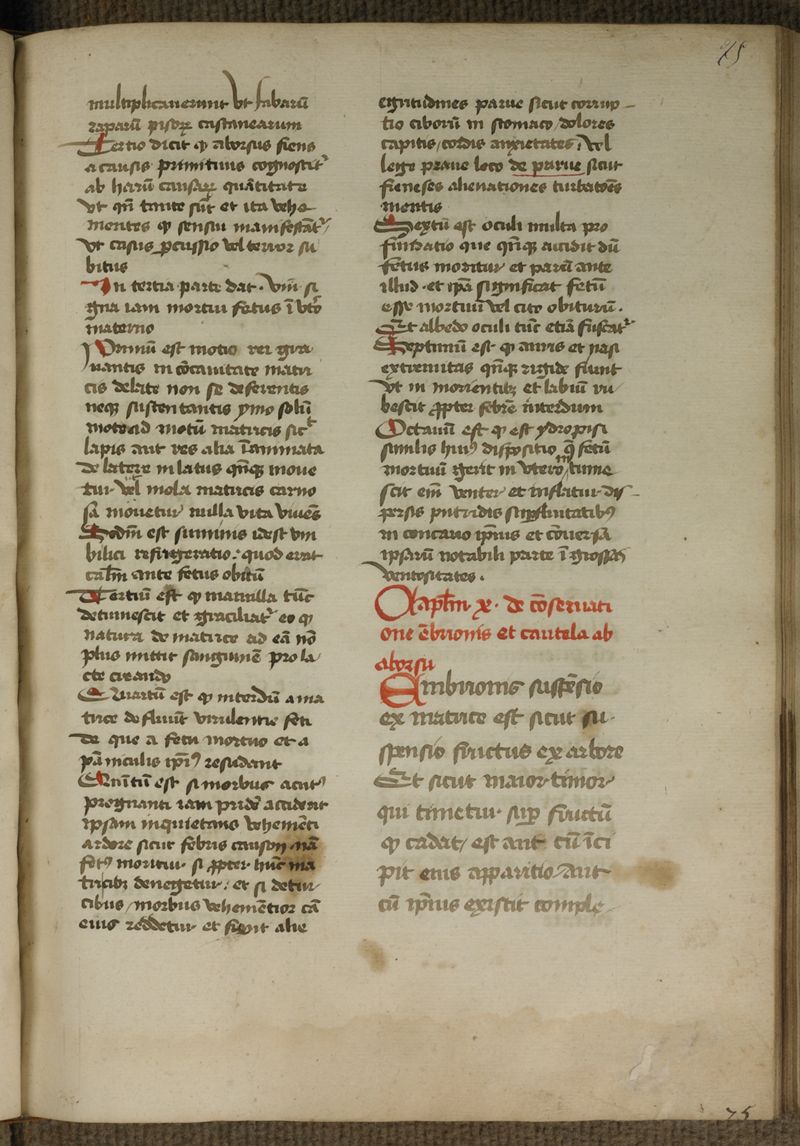 75
multiplicauerunt Vt fabarū
raparū pisoꝝ castanearum
Tertio dicit ꝙ aborsus fiens
a causis primitiuis cognoscit᷑
ab harū causaꝝ quātitate
Vt qn̄ tante sūt et ita vehe
mentes ꝙ sensui manifestāt᷑
Vt casus ꝑcussio vel terror su
bitus
In tertia parte dat . Viii si
gna iam mortui fetus ī vtͦ
materno
Primū est motio rei gra
uantis in cōcauitate matri
cis delate non se deferentis
neqꝫ sustentantis ymo solū
mote ad motū matricis sict
lapis aut res alia īanimata
de latere in latus qn̄qꝫ moue
tur Vel mola matricis carno
sa mouetur nulla vita viuēs
Scdm̄ est suminis idest vm
bilici refrigeratio . quod erat
calm̄ ante fetus obitū
Tertiū est ꝙ mamilla tūc
detumescit et graciliat᷑ eo ꝙ
natura de matrice ad eā nō
plus mittit sanguinē pro la
cte creando
Quartū est ꝙ interdū a ma
trice defluūt virulentie feti
de que a fetu mortuo et a
pāniculis ip̄iꝰ resudant
Quītū est si morbus acutꝰ
pregnanti iam pridē acciderit
ipsam inquietans vehemēti
ardore sicut febris causon nā
fetꝰ moritur si ꝓpter hūc ma
tricibꝫ denegetur . et si detur
cibus / morbus vehemētior cā
eius reddetur et fiunt alie
egritudines parue sicut corrup
tio ciborū in stomaco / dolores
capitis / cordis anxietates / Vel
lege praue loco de parue sicut
freneses alienationes turbatōes
mentis
Sextū est oculi multa pro
fundatio que qn̄qꝫ accidit dū
fetus moritur et parū ante
illud . et ip̄a significat fetū
esse mortuū vel cito obiturū .
Et albedo oculi tūc etiā fuscat᷑
Septimū est ꝙ auris et nasi
extremitas qn̄qꝫ rigide fiunt
Vt in morientibꝫ et labiū ru
bescit ꝓpter febrē interdum
Octauū est ꝙ est ydropisi
similis huiꝰ dispositio q̄ fetū
mortuū gerit in vtero / tume
scit em̄ venter et inflatur dis
persis putridis suꝑfluitatibꝰ
in concauo ip̄ius et cōuersa
ipsarū notabili parte ī grossas
ventositates .
Caplm̄ x . de cōseruati
one ēbrionis et cautela ab
aborsu
Embrionis suspēsio
ex matrice est sicut su
spensio fructus ex arbore
Et sicut maior timor
qui timetur suꝑ fructū
ꝙ cadat / est aut cū īci
pit eius apparitio Aut
cū ip̄ius existit comple
75